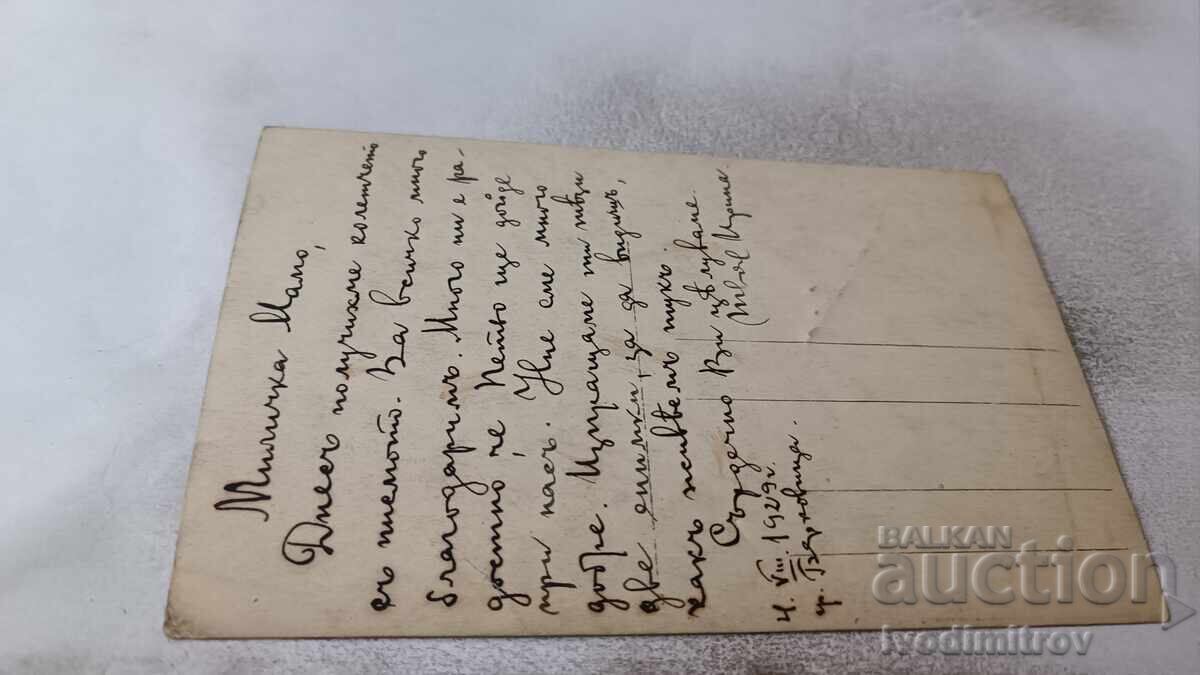 Миличка Мамо,
Днесъ получихме колетчето
съ писмото. За всичко много
благодаримъ. Много ни е ра-
достно че Петьо ще дойде
при насъ. Ние сме много
добре. Изпращаме ти тези
две снимки, за да видишъ,
какъ живѣемъ тукъ.
Сърдечно Ви цѣлуваме.
Твоя Ирина
4. VIII. 1929 г.
гр. Бѣрковица.
BALKAN
auction
ivodimitrov